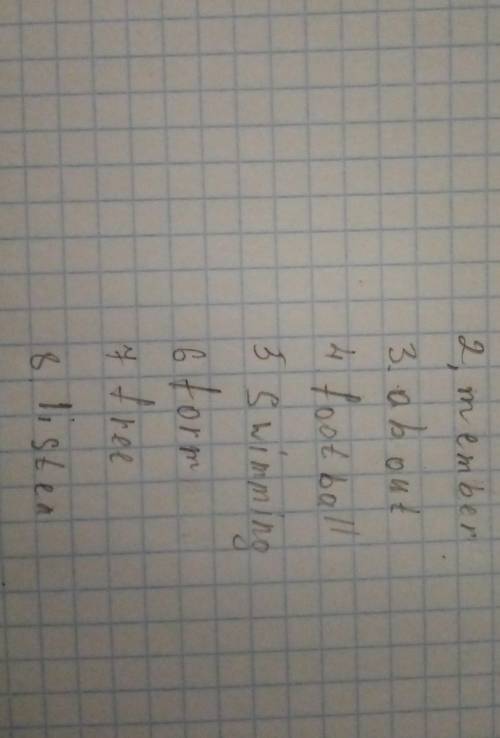 2, member
3. about
4. football
5 swimming
6 form
7 free
8. listen